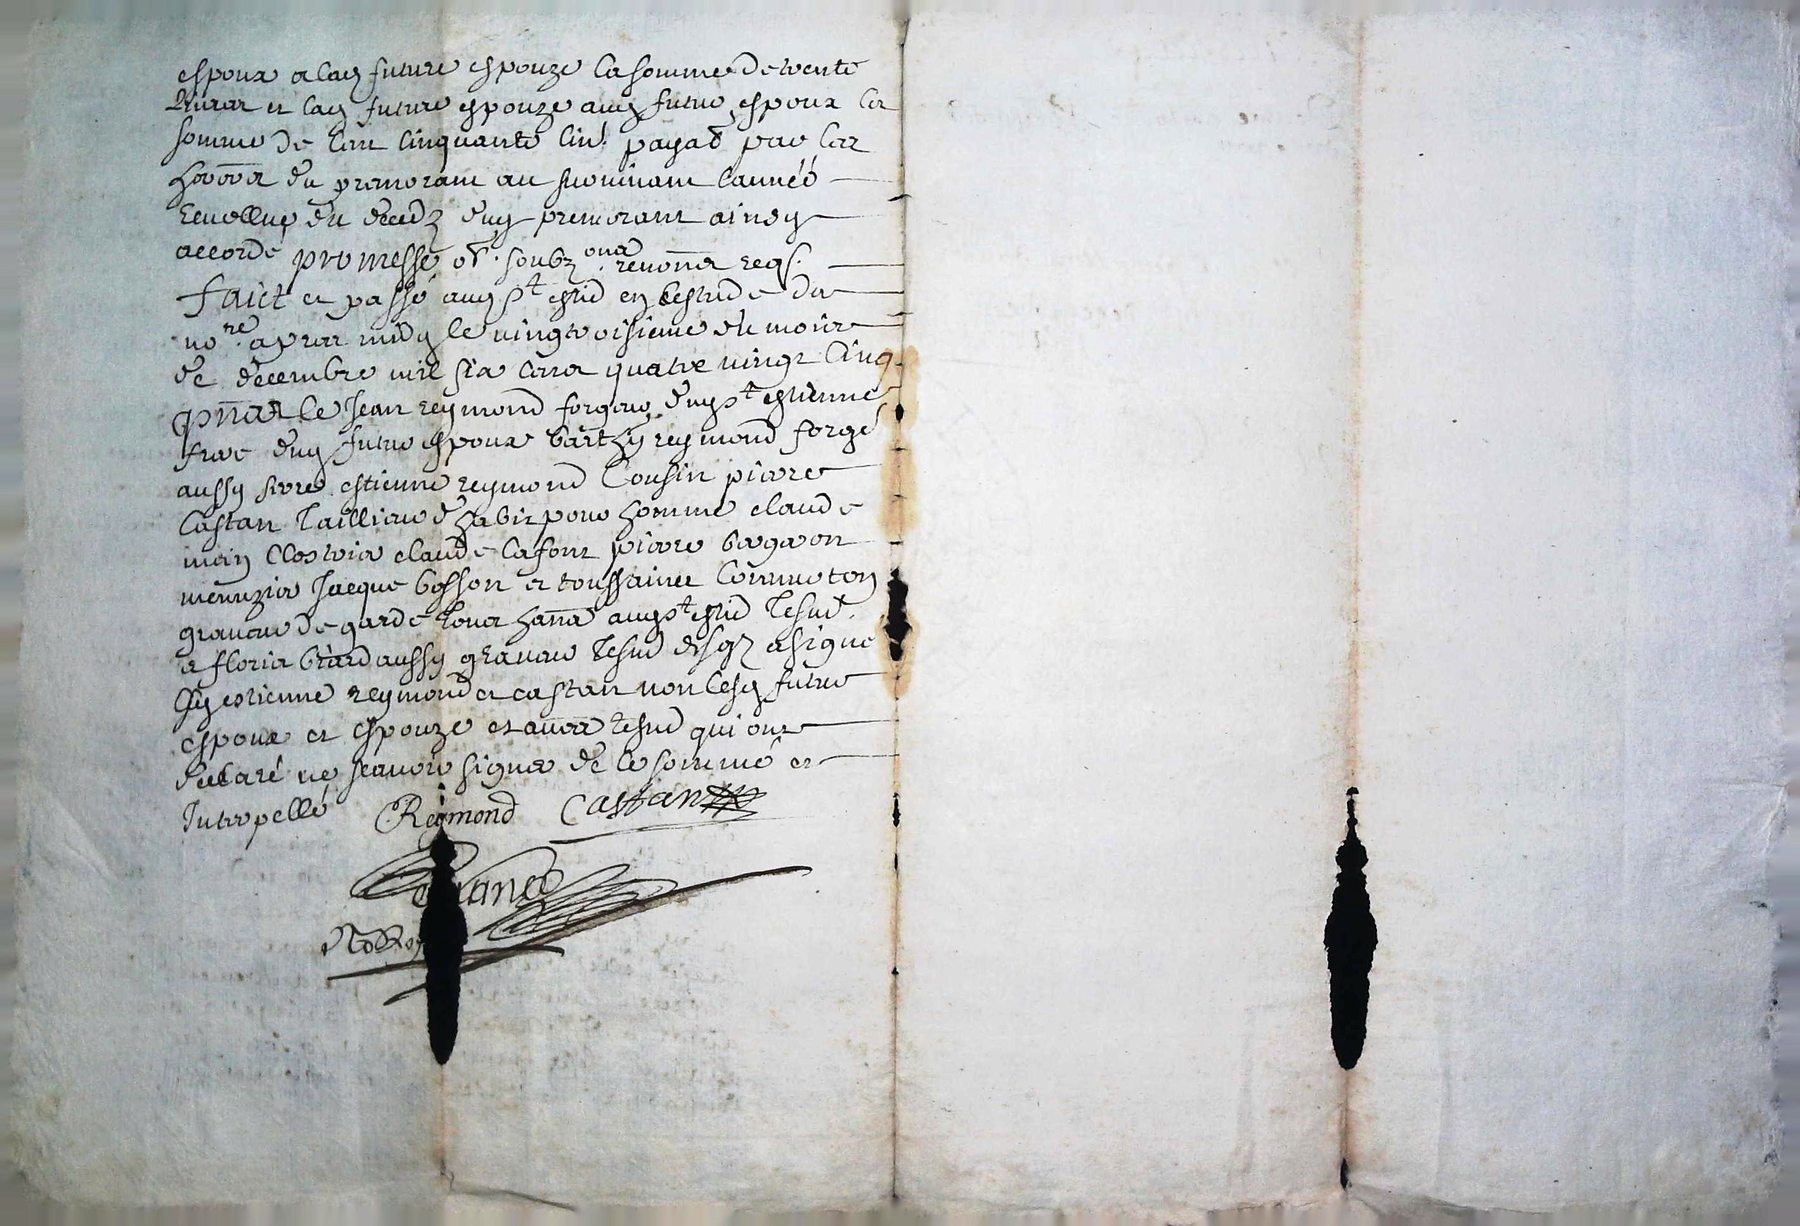 espoux a lad future espouze la somme de trente
livres et lad future espouze aud futur espoux la
somme de cent cinquante liv. payab par les
du premorant au survivant l'année
revollue du deced dud premorant ainsy
accordé promesse obl. soubz renon reqs.
faict et passé aud St estie en l'estude du
no.re apres midy le vingtroisieme du mois
de decembre mil six cens quatre vingt cinq
pns le Jean reymond forgeur dud St estienne
frere dud futur espoux barthy reymond forge
aussy frere estienne reymond cousin pierre
Castan tailleur d'habit pour homme claude
claude lafont pierre
menuzier Jacque bosson et toussainct
graveur de garde tous han aud St estie tesm.
et aussy graveur tesm signe
estienne reymond et castan non lesd futur
espoux et espouze et au tesm qui ont
declaré ne scavoir signer de ce sommé et
Interpellé Reymond Castan